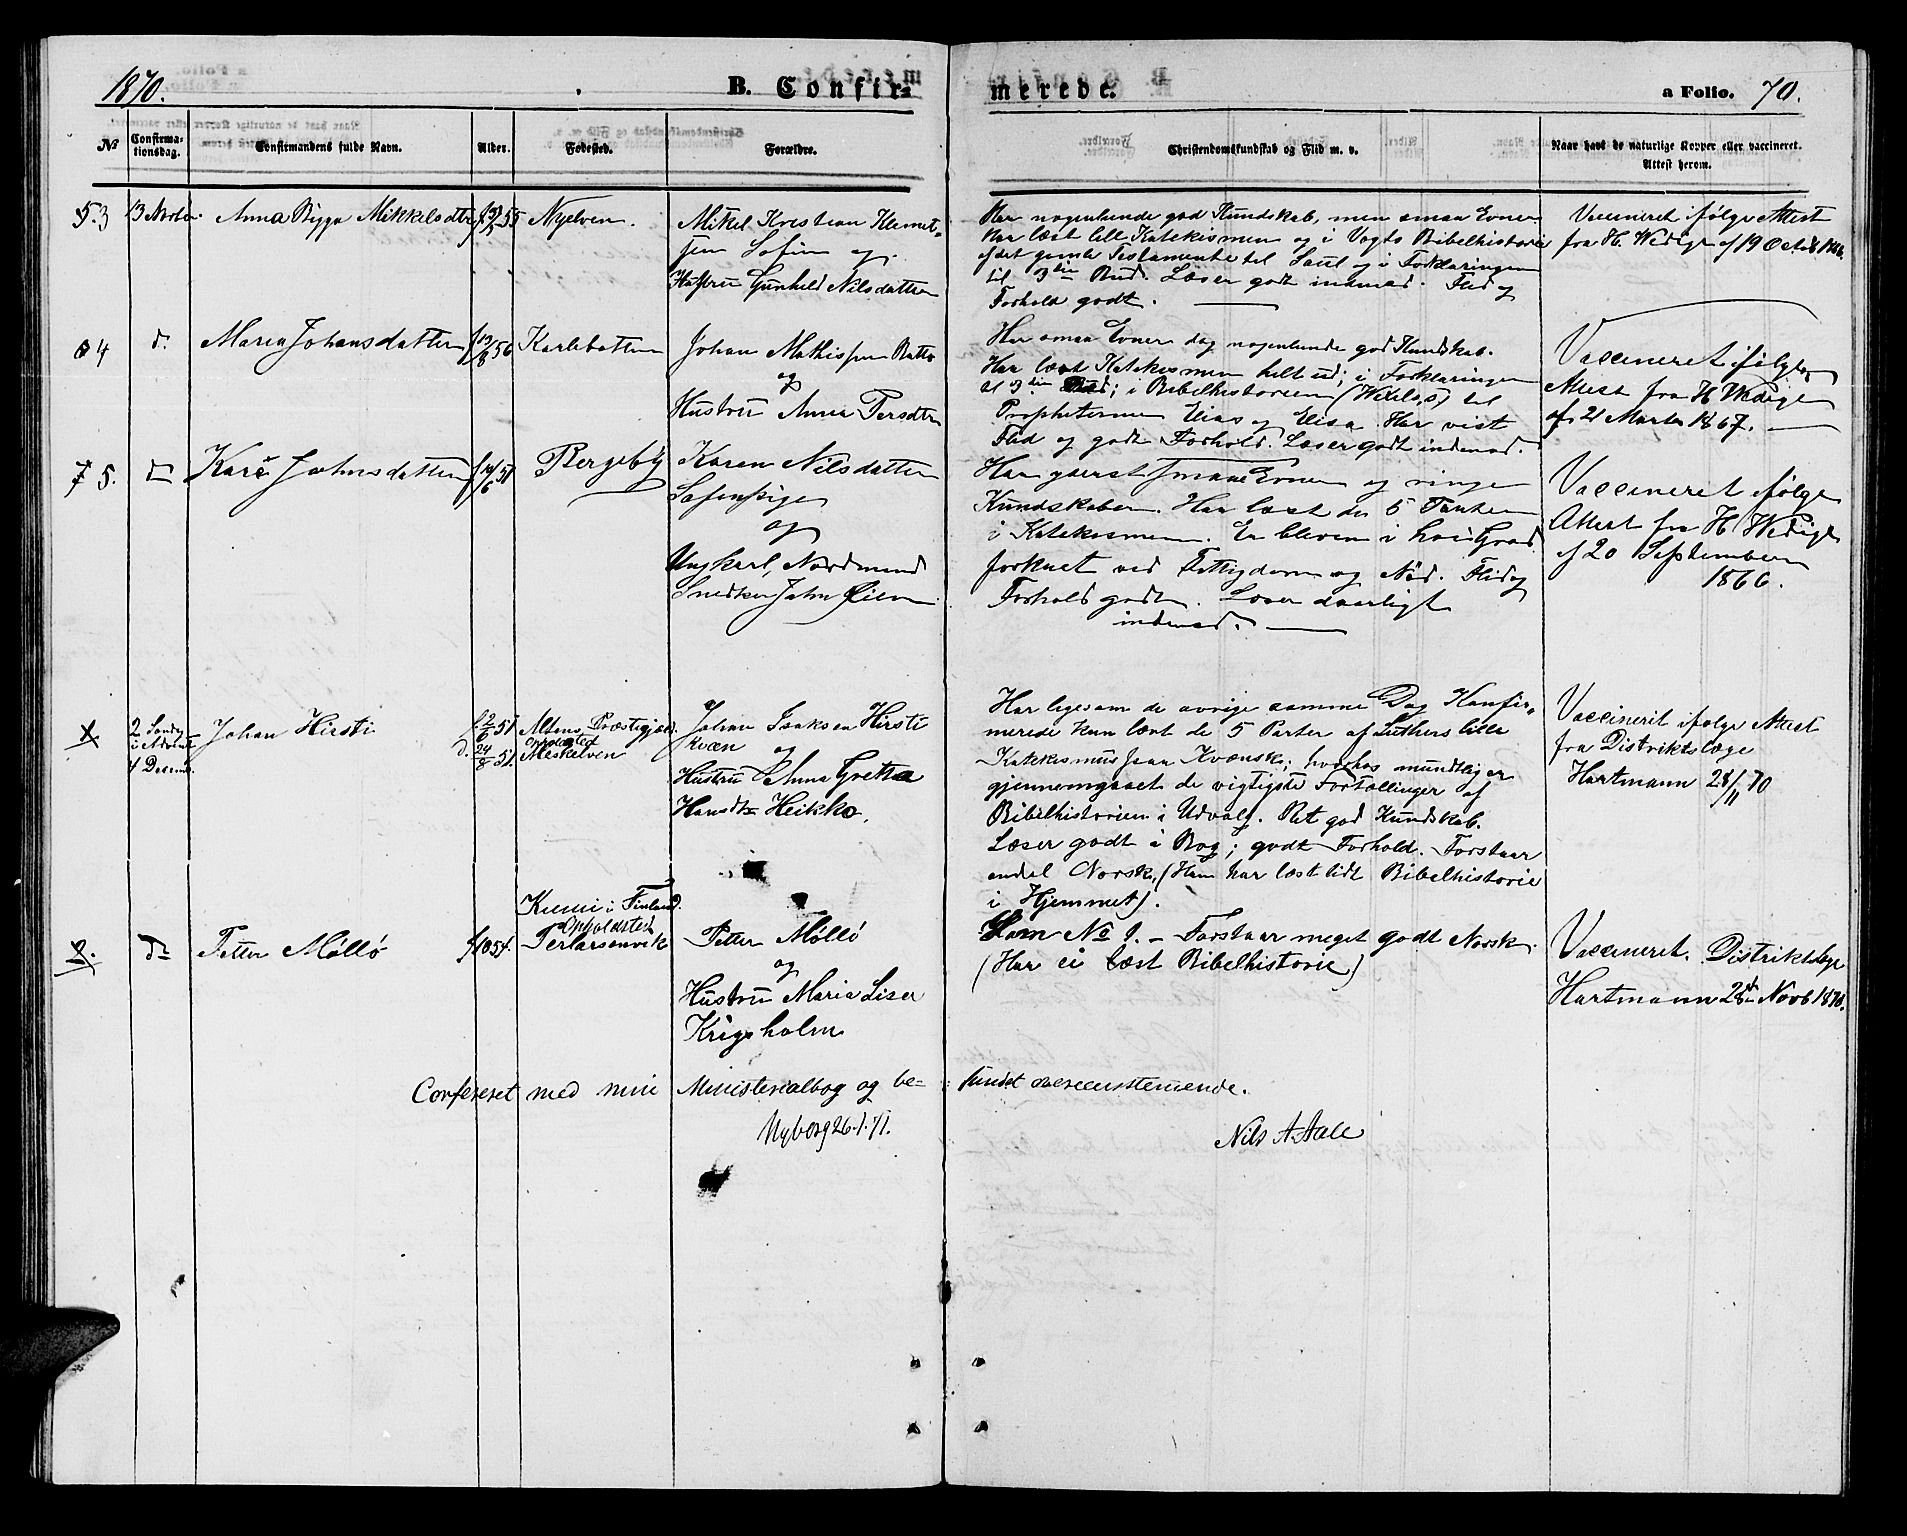 1870.
B. Confir=
merede.
a Folio. 70.
№
Confirma-
tionsdag.
Confirmandens fulde Navn.
Alder.
Fødested.
Forældre.
Christendomskundskab og Flid m. v.
Naar havt de naturlige Kopper eller vaccineret.
Attest herom.
3
13 Novbr.
Anna Bigga Mikkelsdtr
55
Nyelven.
Mikel Kristian Klemet-
sen Sofin og
Hustru Gunhild Nilsdatter
Har nogenlunde god Kundskab, men smaa Evner
Har læst lille Katekismen og i Vogts Bibelhistorie
af det gamle Testamente til Saul og i Forklaringen
til 3die Bud. Læser godt indenad. Flid og
Forhold godt.
Vaccineret ifølge Attest
fra H. Wedige af 19 Octob 1866.
4
d.
Maria Johansdatter
f 19/8 56
Karlebotten
Johan Mathissen Ratto
og
Hustru Anna Persdtr
Har smaa Evner dog nogenlunde god Kundskab.
Har læst Katekismen helt ud; i Forklaringen
til 3die Bud; i Bibelhistorien (Wexels,s) til
Propheterne Elias og Elisa. Har vist
Flid og godt Forhold. Læser godt indenad.
Vaccineret ifølge
Attest fra H Wedige
af 21 Marts 1867.
5.
Kari Johnsdatter
51
Bergeby
Karen Nilsdatter
og
Ungkarl, Nordmand
Snedker John
Har yderst smaa Evner og ringe
Kundskaber. Har læst de 5 Parter
i Katekismen. Er bleven i høi Grad
forkuet ved Fattigdom og Nød. Flid og
Forhold godt. Læser daarligt
indenad.
Vaccineret ifølge
Attest fra H Wedige
af 20 September
1866.
2 Sondg
i Advent
4 Decemb.
Johan Hirsti
f. 2/6 51
d. 24/8 51.
Altens Præstegjeld.
Opholdsted
Meskelven
Johan Isaksen Hirsti
Kvæn og
Hustru Anna Gretha
Hansdtr Heikko.
Har ligesom de øvrige samme Dag Konfir-
merede kun lært de 5 Parter af Luthers lille
Katekismus paa Kvænsk; hvorhos mundtlig er
gjennemgaaet de vigtigste Fortællinger af
Bibelhistorien i Udvalg. Ret god Kundskab.
Læser godt i Bog; godt Forhold. Forstaar
endel Norsk. (Ham har læst lidt Bibelhistorie
i Hjemmet).
Vaccinerit ifølge Attest
fra Distriktslæge
Hartmann 28/11 70
2.
do
Petter Möllö
54.
Kemi i Finland.
Opholdsted
Perlarsenvik
Petter Möllö
og
Hustru Maria Liser
Krigsholm
Som No 1. – Forstaar meget godt Norsk.
(Har ei læst Bibelhistorie)
Vaccineret. Distriktslæge
Hartmann 28de Novb 1870.
Confereret med min Ministerialbog og be=
fundet overensstemmende.
Nyborg 26.1.71.
Nils A. Aall